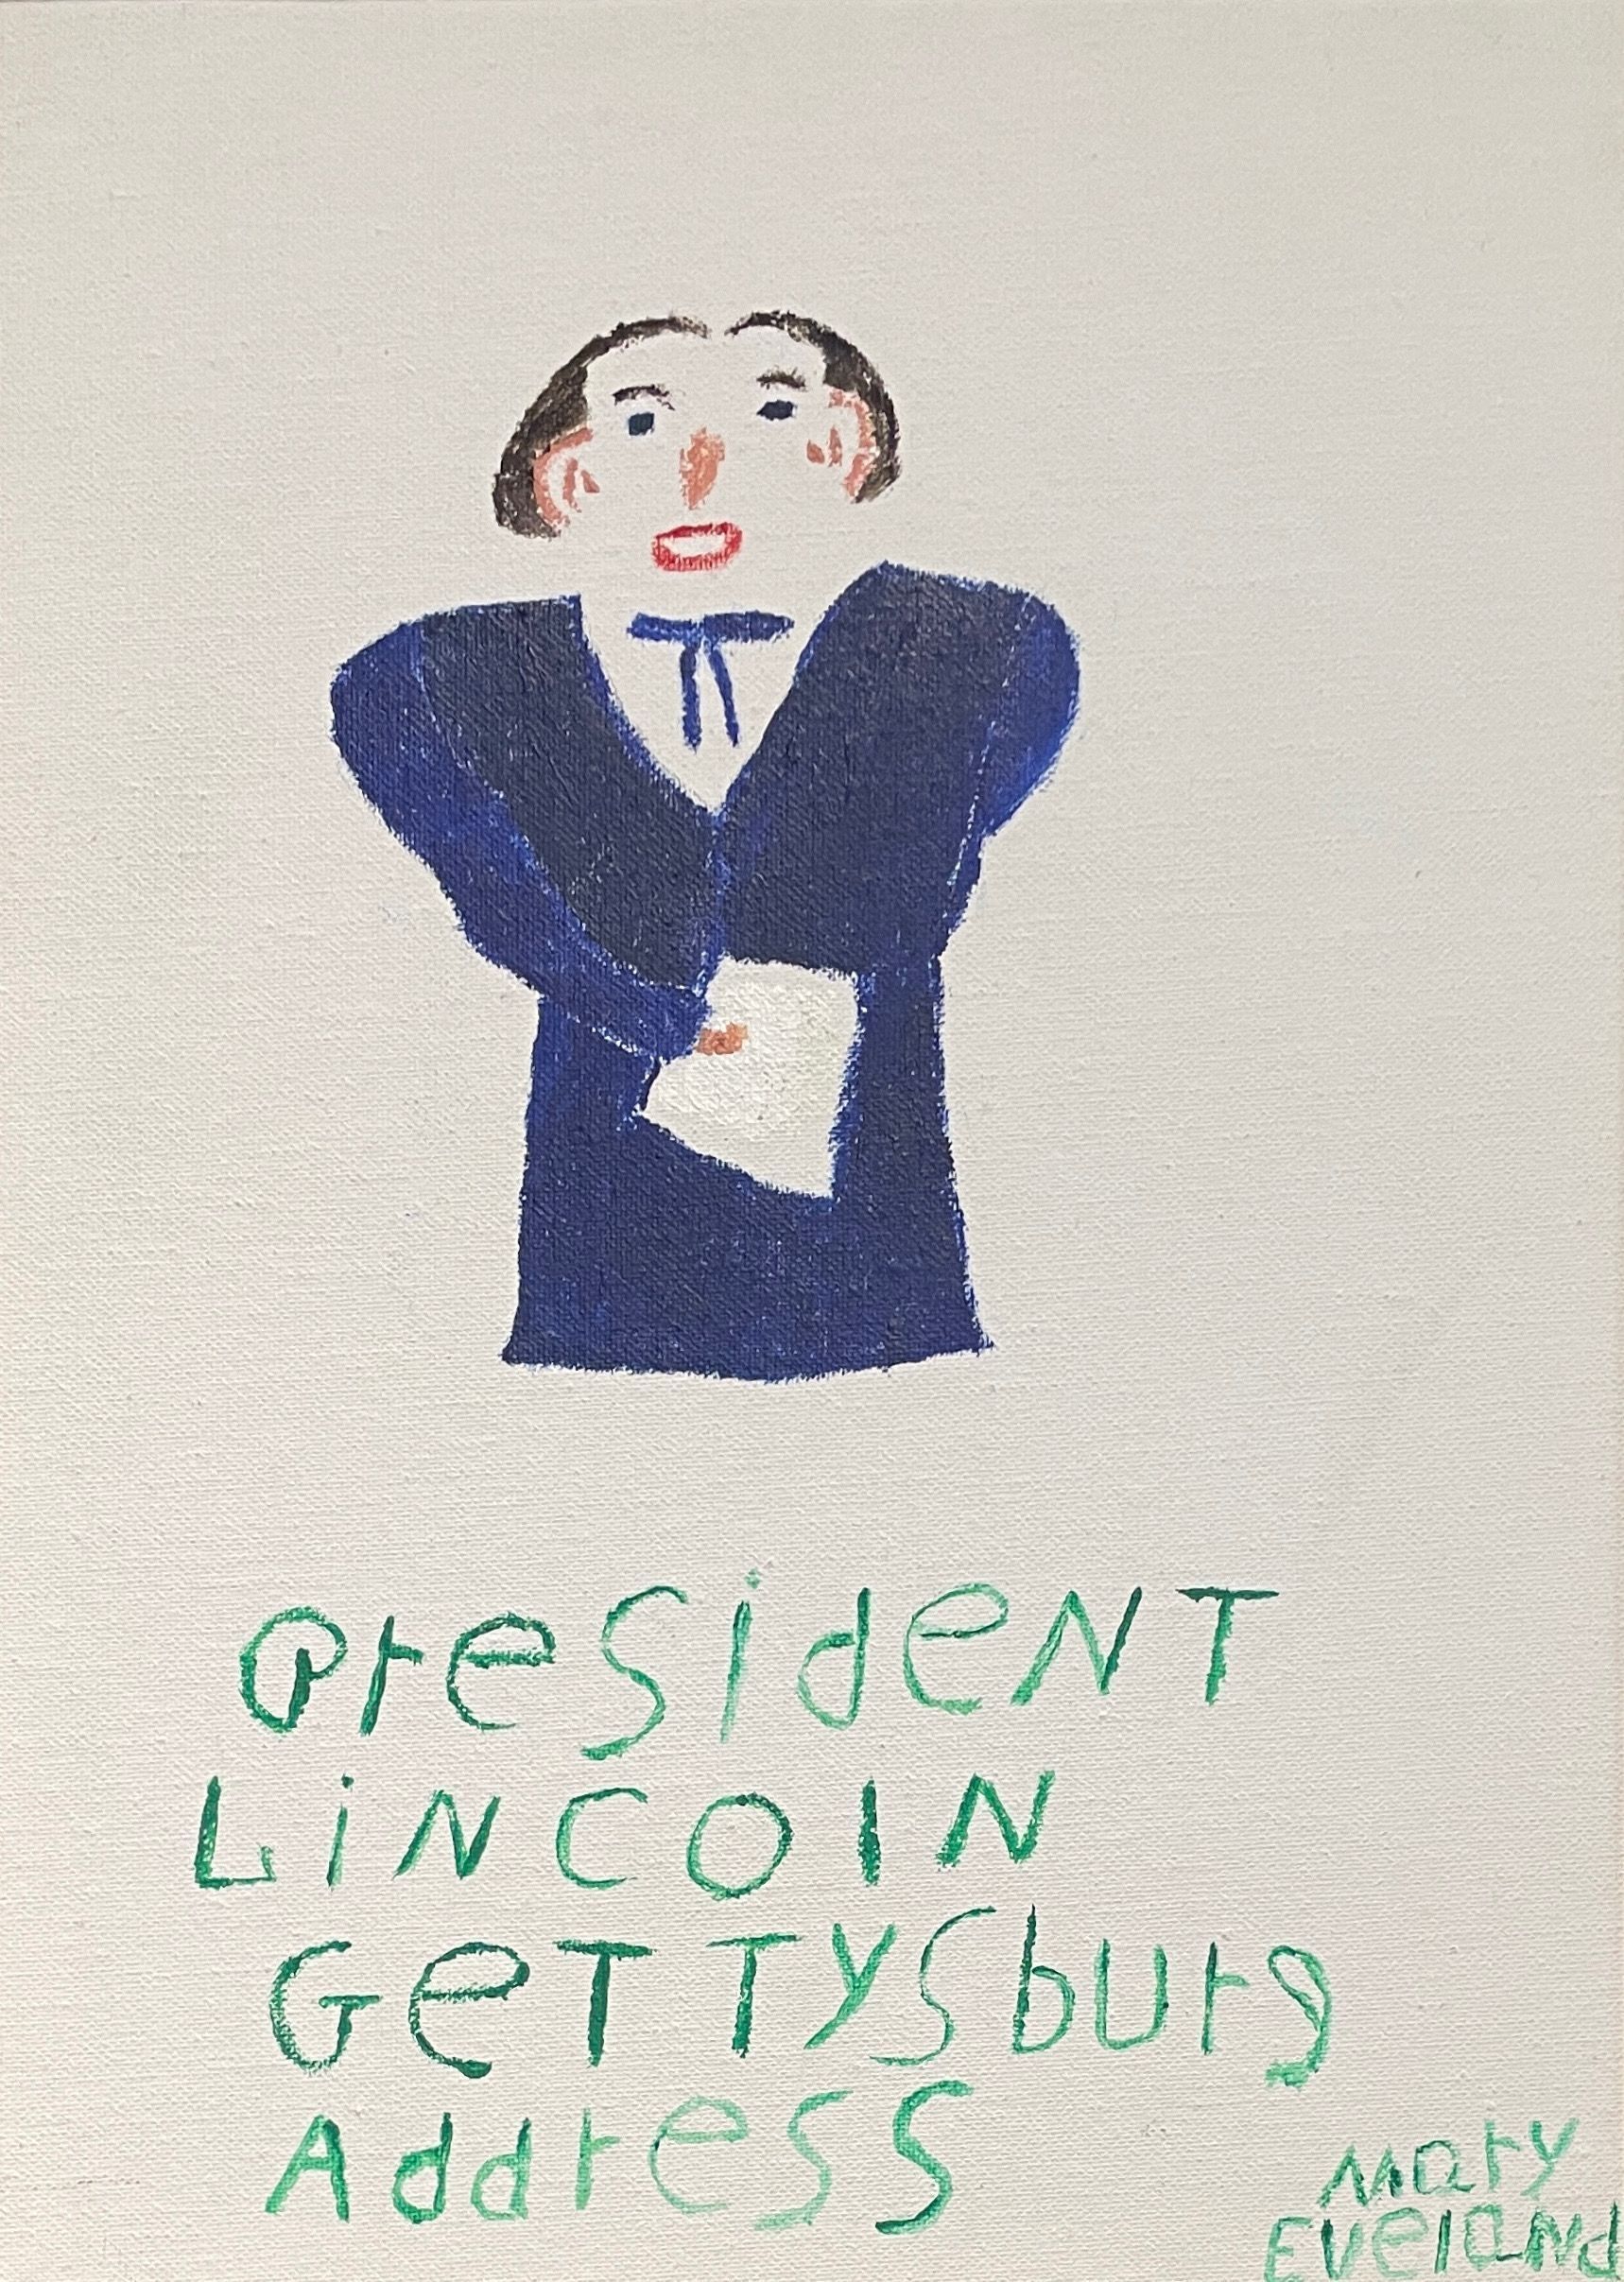 PresideNT
LiNCOlN
GeTTysburg
Address
Mary
Eveland